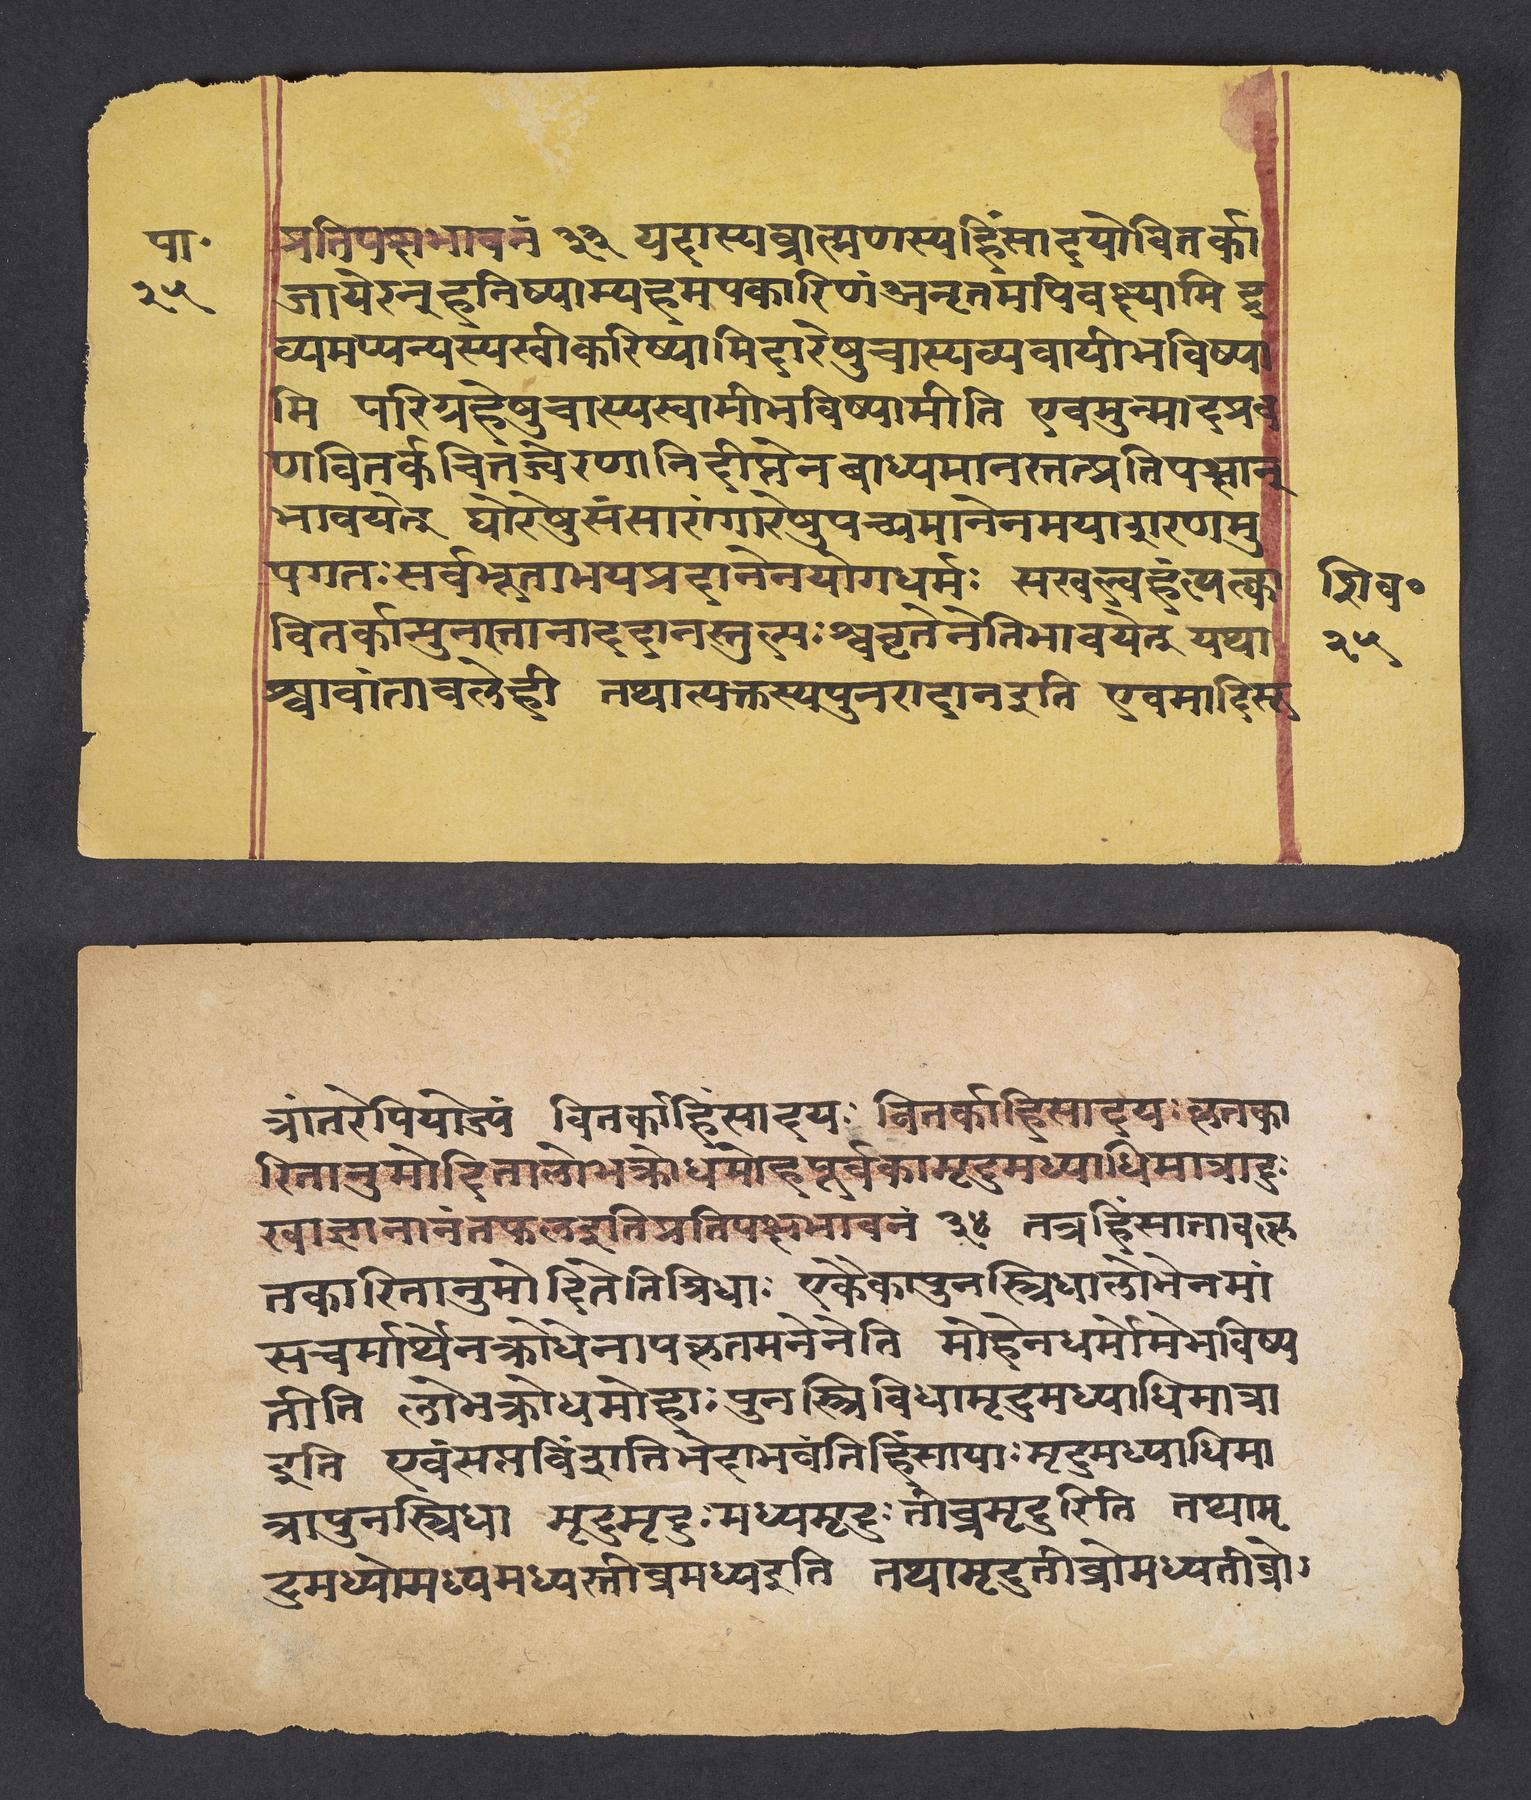 पा॰
२५
प्रतिपक्षभावनं ३३ यदास्यब्राह्मणस्यहिंसादयोवितर्का
जायेरन्हनिष्याम्यहमपकारिणंअनृतमपिवक्ष्यामि द्र
व्यमप्यन्यस्यस्वीकरिष्यामिदारेषुचास्यव्यवायीभविष्या
मि परिग्रहेषुचास्यस्वामीभविष्यामीति एवमुन्मादप्रव
णवितर्क
बाध्यमानस्तत्प्रतिपक्षान्
भावयेत् घोरेषुसंसारांगारेषुपच्यमानेनमयाशरणमु
पगतःसर्वभूताभयप्रदानेनयोगधर्मः सखल्वहंत्यत्का
वितर्कान्पुनस्तानाददानस्तुल्यःश्ववृत्तेनेतिभावयेत् यथा
श्वावांतावलेही तथात्यक्तस्यपुनरादानइति एवमादिसू
शिव॰
२५
त्रांतरेपियोज्यं वितर्काहिंसादयः वितर्काहिंसादयःकृतका
रितानुमोदितालोभक्रोधमोहपूर्वकामृदुमध्याधिमात्रादुः
खाज्ञानानंतफलइतिप्रतिपक्षभावनं ३४ तत्रहिंसातावत्कृ
तकारितानुमोदितेतित्रिधाः एकैकापुनस्त्रिधालोभेनमां
सचर्मार्थेनक्रोधेनापकृतमनेनेति मोहेनधर्मोमेभविष्य
तीति लोभक्रोधमोहाःपुनस्त्रिविधामृदुमध्याधिमात्रा
इति एवंसप्तविंशतिभेदाभवंतिहिंसायाःमृदुमध्याधिमा
त्रापुनस्त्रिधा मृदुमृदुःमध्यमृदुःतीव्रमृदुरिति तथामृ
दुमध्योमध्यमध्यस्तीव्रमध्यइति तथामृदुतीव्रोमध्यतीव्रो